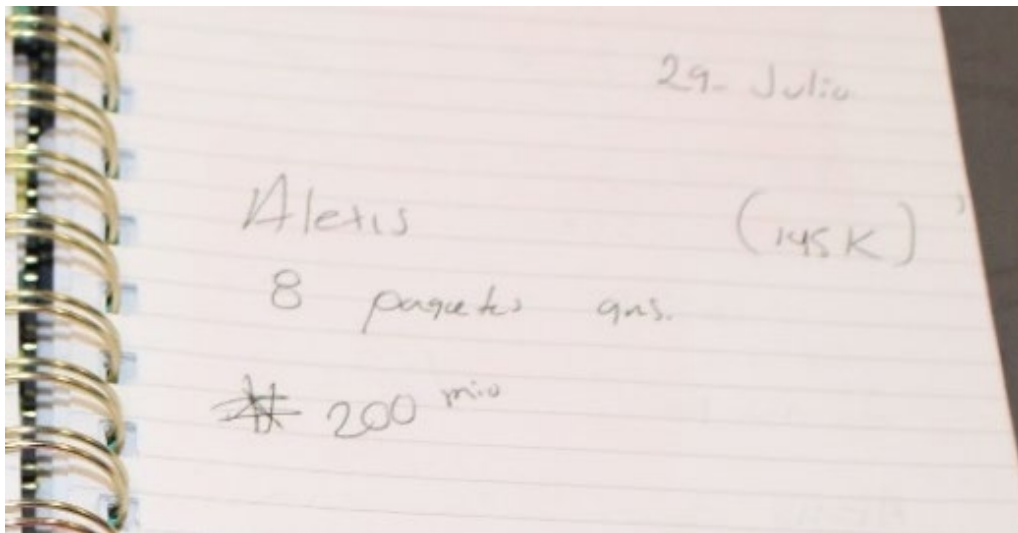 29- Julio
Alexis (145K)
8 paquetes grs.
# 200 mio